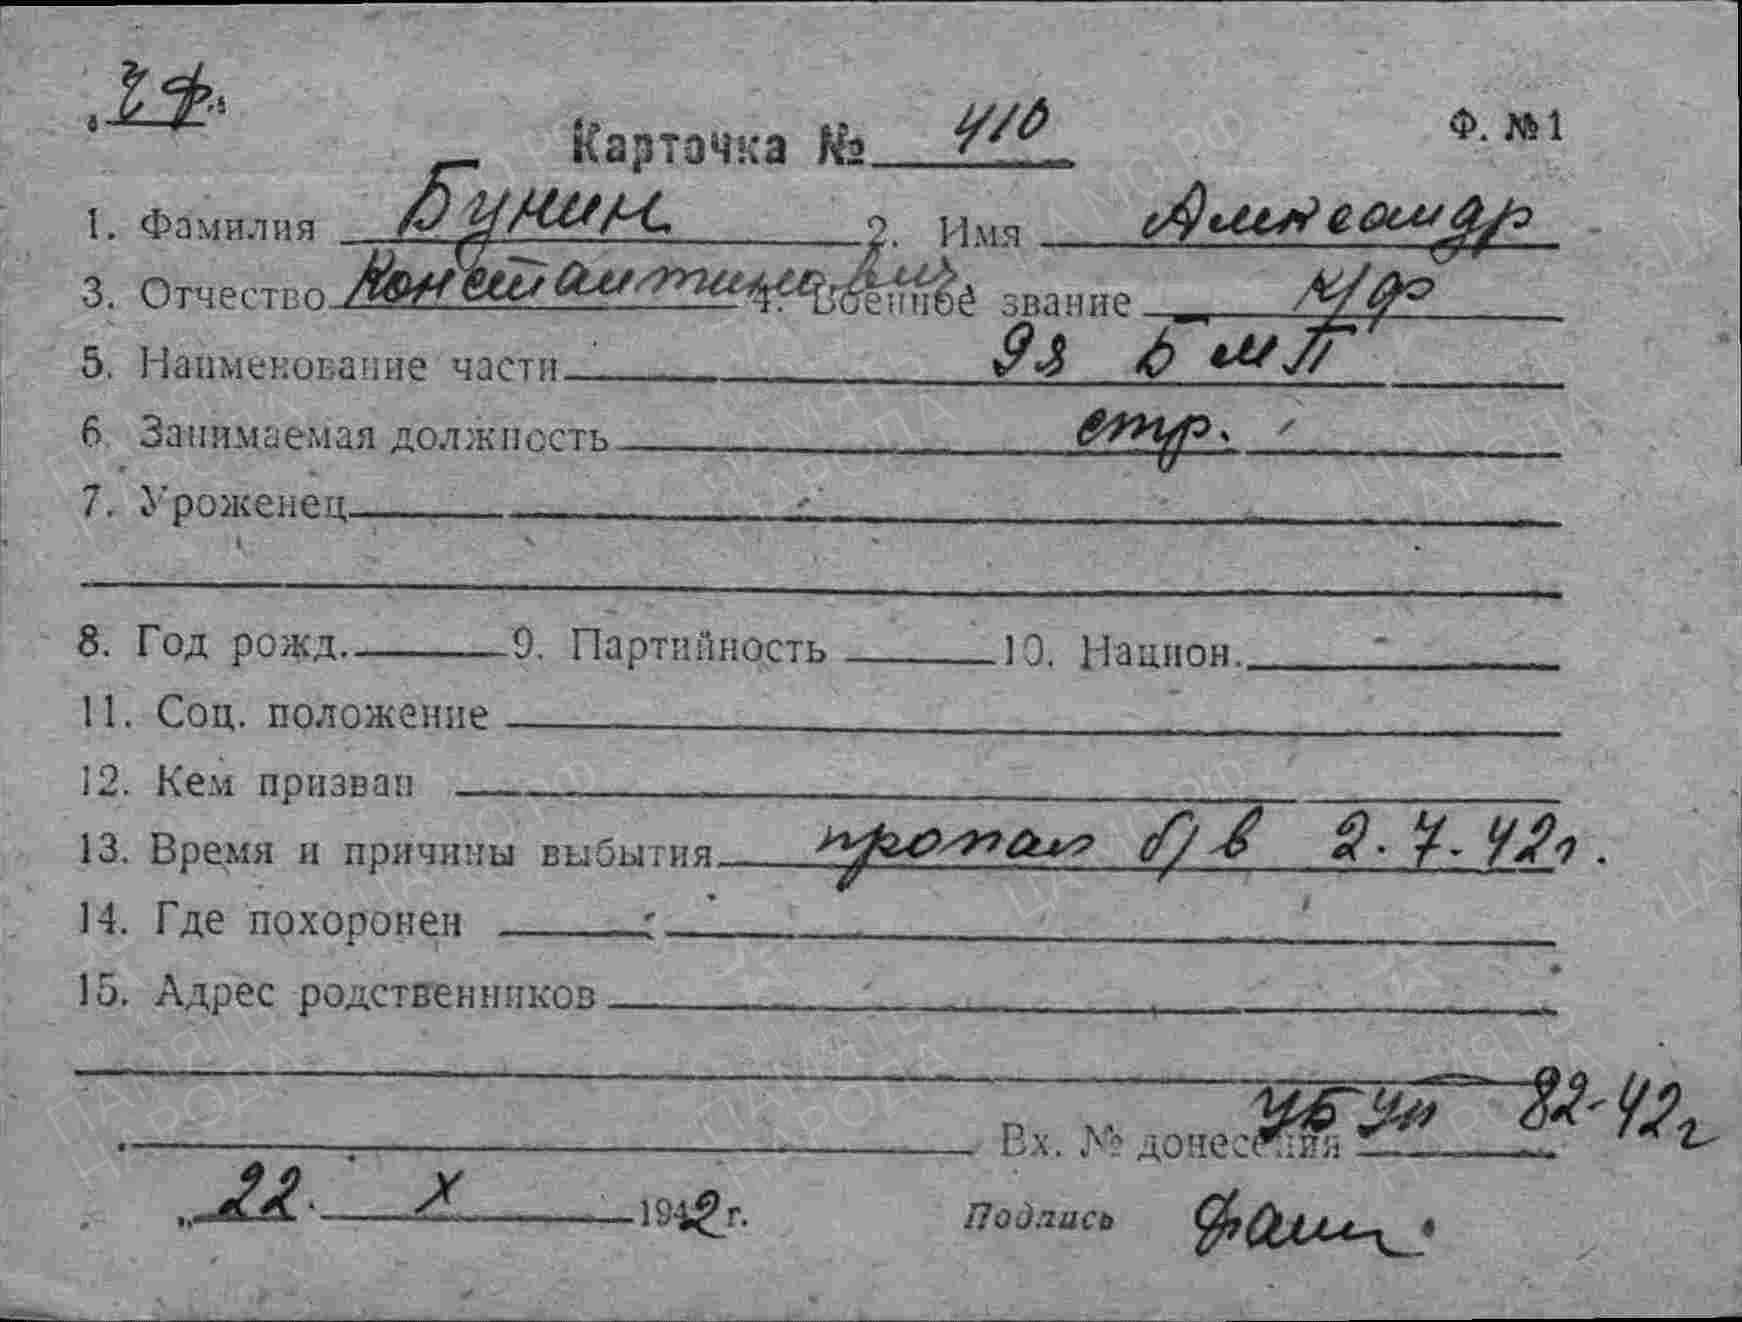 ЧФ.
Карточка № 410 Ф. №1
1. Фамилия Бунин 2. Имя Александр
3. Отчество Константинович 4. Военное звание к/ф
5. Наименование части 9я БМП
6. Занимаемая должность стр.
7. Уроженец
8. Год рожд. 9. Партийность 10. Национ.
11. Соц. положение
12. Кем призван
13. Время и причины выбытия пропал б/в 2.7.42г.
14. Где похоронен
15. Адрес родственников
Вх. № донесения УБ УП 82-42г
„22. X 1942г.
Подпись
ПАМЯТЬ НАРОДА
ЦАМО РФ